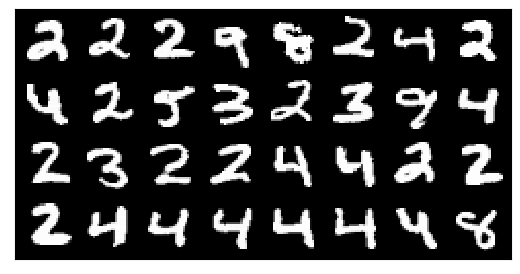 2 2 2 9 8 2 4 2
4 2 5 3 2 3 9 4
2 3 2 2 4 4 2 2
2 4 4 4 4 4 4 8